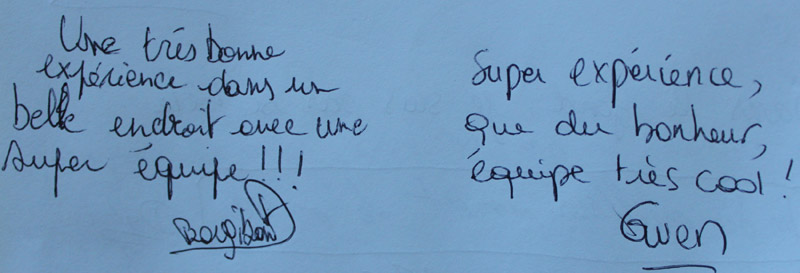 Une très bonne
expérience dans un
belle endroit avec une
super équipe !!!
Super expérience,
que du bonheur,
équipe très cool !
Gwen